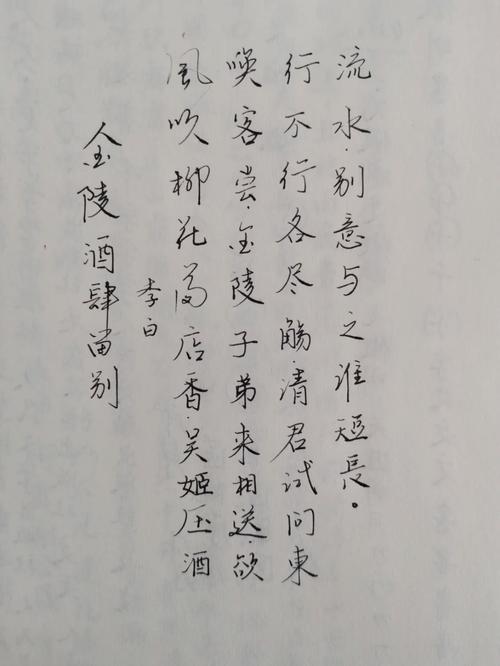 金陵酒肆留别
李白
風吹柳花满店香·吴姬压酒
唤客尝·金陵子弟来相送·欲
行不行各尽觞·清君试问東
流水·别意与之谁短長。